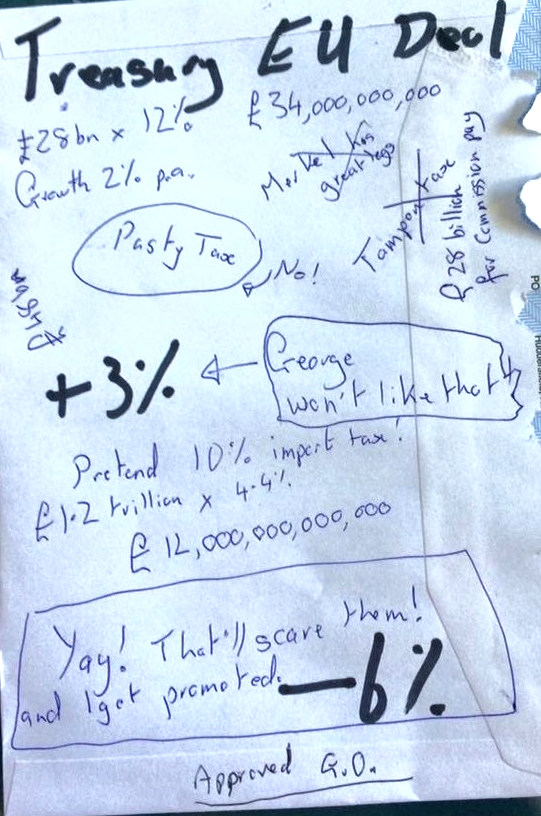 Treasury EU Deal
£28bn x 12%
£34,000,000,000
Growth 2% p.a.
Merkel has
great legs
Tampon tax
£28 billion
for Commission pay
Pasty Tax
No!
+3%
George
won't like that!
Pretend 10% import tax!
£1.2 trillion x 4.4%
£12,000,000,000,000
Yay! That'll scare them!
and I get promoted.
—6%
Approved G.O.